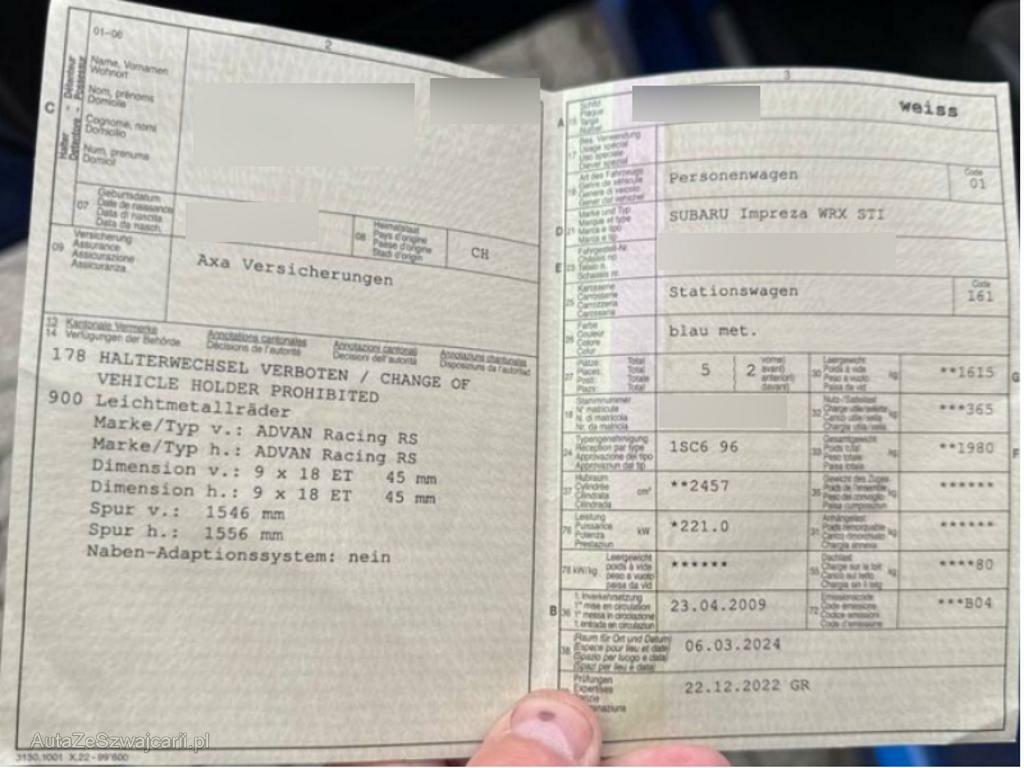 2
01-06
Halter
Détenteur
Detentore
Possessur
C
Name, Vornamen
Wohnort
Nom, prénoms
Domicile
Cognome, nomi
Domicilio
Num, prenums
Domicil
07
Geburtsdatum
Date de naissance
Data di nascita
Data da nasch.
08
Heimatstaat
Pays d'origine
Paese d'origine
Stadi d'origin
CH
09
Versicherung
Assurance
Assicurazione
Assicuranza
Axa Versicherungen
13
14
Kantonale Vermerke
Verfügungen der Behörde
Annotations cantonales
Décisions de l'autorité
Annotazioni cantonali
Decisioni dell'autorità
Annotaziuns chantunalas
Disposiziuns da l'autoritad
178 HALTERWECHSEL VERBOTEN / CHANGE OF
VEHICLE HOLDER PROHIBITED
900 Leichtmetallräder
Marke/Typ v.: ADVAN Racing RS
Marke/Typ h.: ADVAN Racing RS
Dimension v.: 9 x 18 ET 45 mm
Dimension h.: 9 x 18 ET 45 mm
Spur v.: 1546 mm
Spur h.: 1556 mm
Naben-Adaptionssystem: nein
AutaZeSzwajcarii.pl
3
A
15
Schild
Plaque
Targa
weiss
17
Bes. Verwendung
Usage spécial
Uso speciale
Diever spezial
19
Art des Fahrzeugs
Genre de véhicule
Genere di veicolo
Gener dal vehichel
Personenwagen
Code
01
D
21
Marke und Typ
Marque et type
Marca e tipo
Marca e tip
SUBARU Impreza WRX STI
E
23
Fahrgestell-Nr.
Châssis no
Telaio n.
Schassis nr.
25
Karosserie
Carrosserie
Carrozzeria
Carossaria
Stationswagen
Code
161
26
Farbe
Couleur
Colore
Colur
blau met.
27
Plätze: Total
Places: Total
Posti: Totale
Plazs: Total
5
2
vorne)
avant)
anteriori)
davant)
30
Leergewicht
Poids à vide
Peso a vuoto
Paisa da vid
kg
**1615
G
18
Stammnummer
N° matricule
N. di matricola
Nr. da matricla
32
Nutz-/Sattellast
Charge utile/sellette
Carico utile/sella
Chargia utila/sella
kg
***365
24
Typengenehmigung
Réception par type
Approvazione del tipo
Approvaziun dal tip
1SC6 96
33
Gesamtgewicht
Poids total
Peso totale
Paisa totala
kg
**1980
F
37
Hubraum
Cylindrée
Cilindrata
Cilindrada
cm³
**2457
35
Gewicht des Zuges
Poids de l'ensemble
Peso del convoglio
Paisa cumposiziun
kg
******
76
Leistung
Puissance
Potenza
Prestaziun
kW
*221.0
31
Anhängelast
Poids remorquable
Carico rimorchiato
Chargia annexa
kg
******
78 kW/kg
Leergewicht
poids à vide
peso a vuoto
paisa da vid
******
55
Dachlast
Charge sur le toit
Carico sul tetto
Chargia sin il tetg
kg
****80
B
36
1. Inverkehrsetzung
1re mise en circulation
1a messa in circolazione
1. entrada en circulaziun
23.04.2009
72
Emissionscode
Code émissions
Codice emissioni
Code d'emissiuns
***B04
38
(Raum für Ort und Datum)
(Espace pour lieu et date)
(Spazio per luogo e data)
(Spazi per lieu e data)
06.03.2024
Prüfungen
Expertises
22.12.2022 GR
3130.1001 X.22 - 99'600